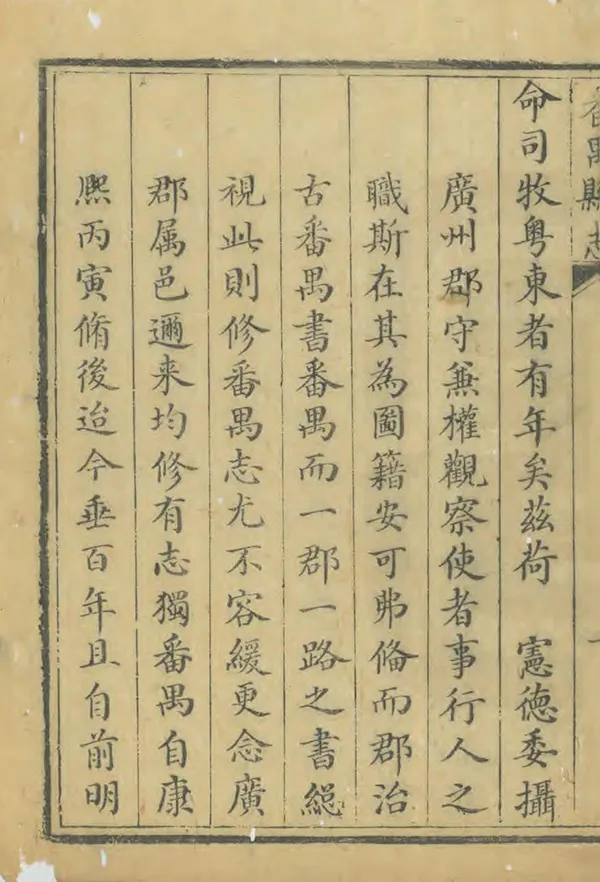 番禺縣志
命司牧粤東者有年矣茲荷　憲德委攝
廣州郡守兼權觀察使者事行人之
職斯在其為圖籍安可弗偹而郡治
古番禺書番禺而一郡一路之書緫
視此則修番禺志尤不容緩更念廣
郡属邑邇来均修有志獨番禺自康
熈丙寅脩後迨今垂百年且自前明